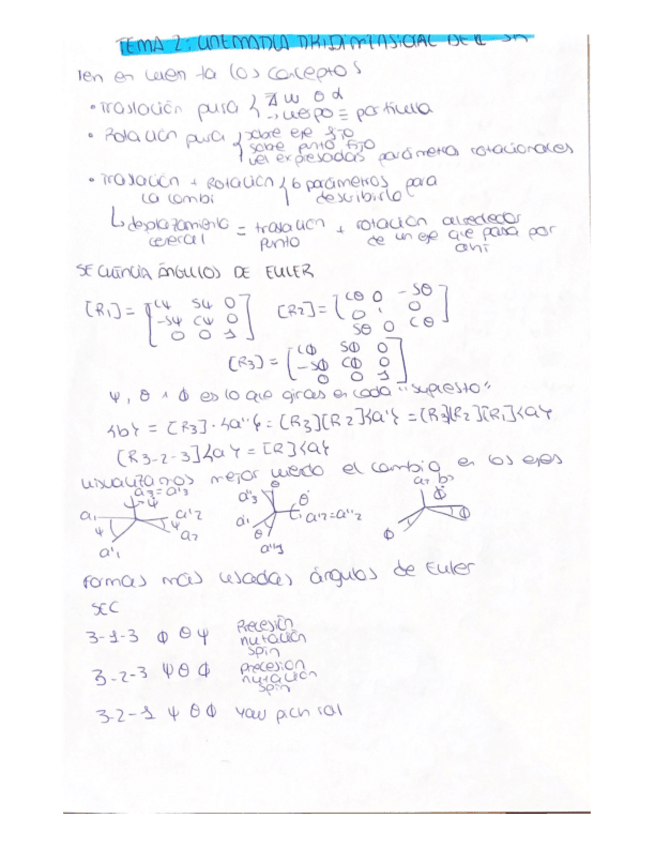 TEMA 2: CINEMATICA TRIDIMENSIONAL DE
Ten en cuenta los conceptos
• Traslación pura { ∄ w o α
→ cuerpo ≡ partícula
• Rotación pura { sobre eje fijo
sobre punto fijo
vel expresadas parámetros rotacionales
• Traslación + Rotación { 6 parámetros para
La combi describirlo
↳ desplazamiento = traslación + rotación alrededor
general punto de un eje que pasa por
ahí
SECUENCIA ÁNGULOS DE EULER
[R1] = [ cψ sψ 0 [R2] = [ cθ 0 -sθ
-sψ cψ 0 0 1 0
0 0 1 ] sθ 0 cθ ]
[R3] = [ cϕ sϕ 0
-sϕ cϕ 0
0 0 1 ]
ψ, θ n ϕ es lo que giras en cada "supuesto"
{b} = [R3]·{a''} = [R3][R2]{a'} = [R3][R2][R1]{a}
[R3-2-3]{a} = [R]{a}
visualizamos mejor viendo el cambio en los ejes
a3=a'3 θ a3 b3
ψ ψ a''3 θ ϕ
a1 a'2 a'1 a'2=a''2 ϕ
ψ ψ a2 θ ϕ
a'1 a''1
formas mas usadas ángulos de Euler
SEC
3-1-3 ϕ θ ψ Precesión
nutación
spin
3-2-3 ψ θ ϕ precesion
nutación
spin
3-2-1 ψ θ ϕ yaw pich ral